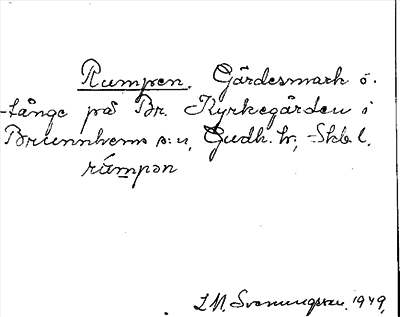 Rumpen. Gärdesmark o.
-tånge på Br. Kyrkegården i
Brunnhems s:n, Gudh. hr, Skb l.
rúmpən
L M. Svenungsson. 1949.